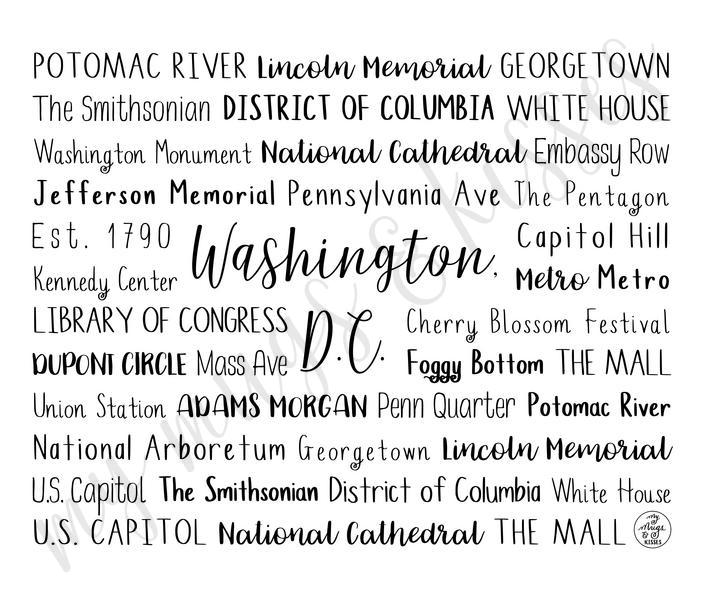 POTOMAC RIVER Lincoln Memorial GEORGETOWN
The Smithsonian DISTRICT OF COLUMBIA WHITE HOUSE
Washington Monument National Cathedral Embassy Row
Jefferson Memorial Pennsylvania Ave The Pentagon
Est. 1790
Washington,
Capitol Hill
Kennedy Center
Metro Metro
LIBRARY OF CONGRESS
D.C.
Cherry Blossom Festival
DUPONT CIRCLE Mass Ave
Foggy Bottom THE MALL
Union Station ADAMS MORGAN Penn Quarter Potomac River
National Arboretum Georgetown Lincoln Memorial
U.S. Capitol The Smithsonian District of Columbia White House
U.S. CAPITOL National Cathedral THE MALL
my
Mugs
&
KISSES
my mugs & kisses